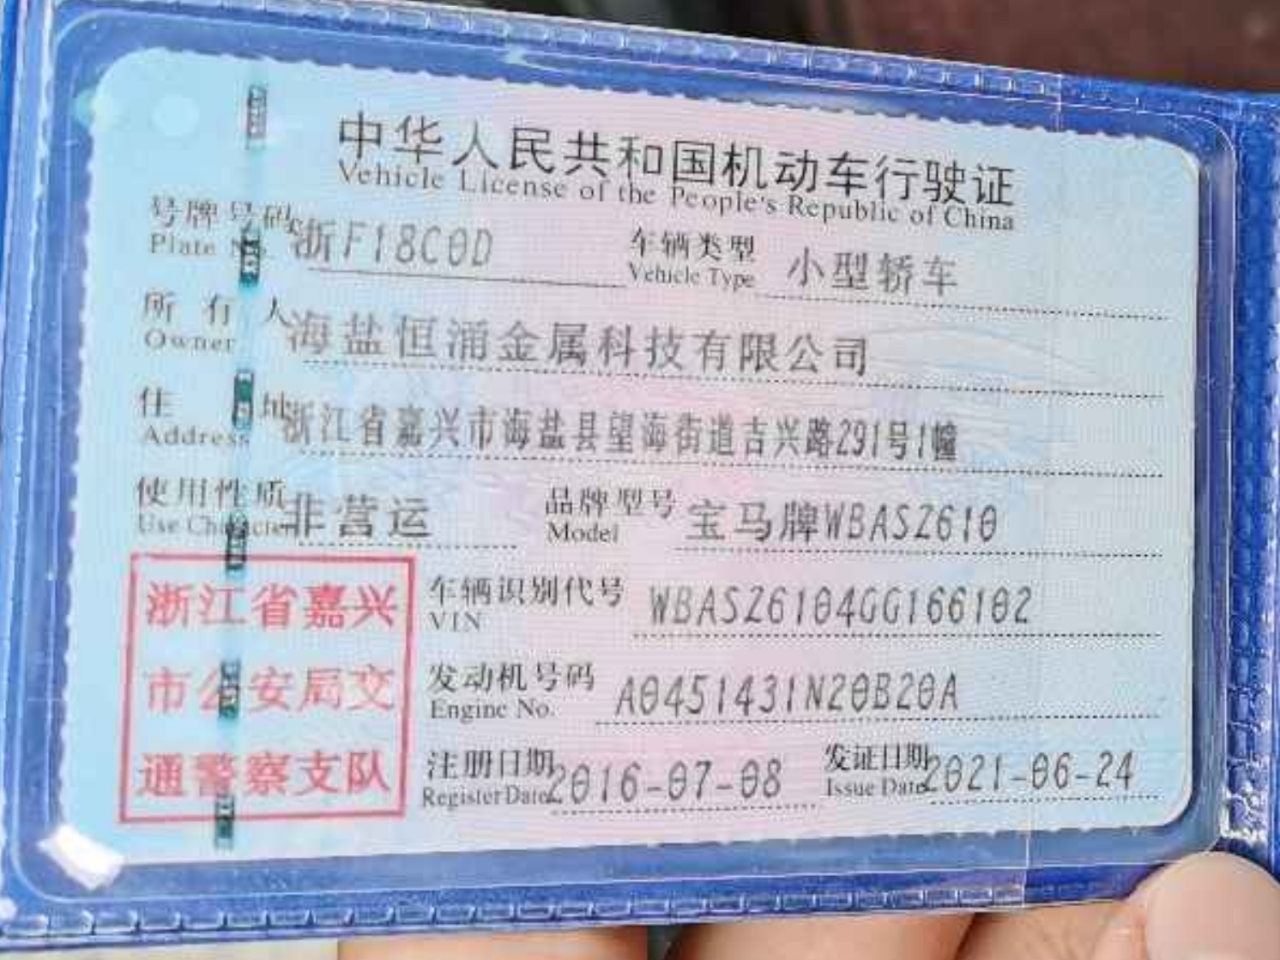 中华人民共和国机动车行驶证
Vehicle License of the People's Republic of China
号牌号码 浙F18C0D 车辆类型 小型轿车
Plate No. Vehicle Type
所有人 海盐恒涌金属科技有限公司
Owner
住址 浙江省嘉兴市海盐县望海街道吉兴路291号1幢
Address
使用性质 非营运 品牌型号 宝马牌WBASZ610
Use Character Model
浙江省嘉兴
市公安局交
通警察支队
车辆识别代号 WBASZ6104GG166102
VIN
发动机号码 A0451431N20B20A
Engine No.
注册日期 2016-07-08 发证日期 2021-06-24
Register Date Issue Date